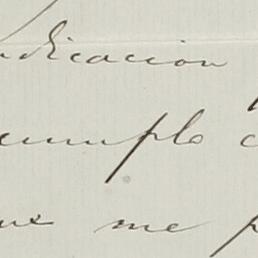 ndicacion
cumplo c
ux me p